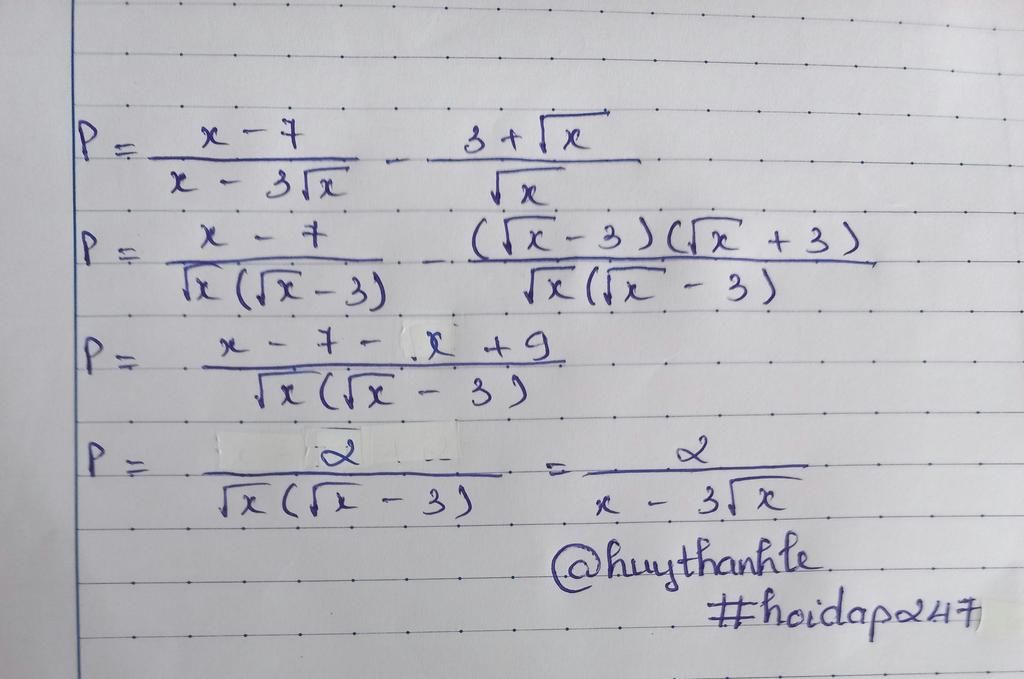 P = \frac{x - 7}{x - 3\sqrt{x}} - \frac{3 + \sqrt{x}}{\sqrt{x}}
P = \frac{x - 7}{\sqrt{x}(\sqrt{x} - 3)} - \frac{(\sqrt{x} - 3)(\sqrt{x} + 3)}{\sqrt{x}(\sqrt{x} - 3)}
P = \frac{x - 7 - x + 9}{\sqrt{x}(\sqrt{x} - 3)}
P = \frac{2}{\sqrt{x}(\sqrt{x} - 3)} = \frac{2}{x - 3\sqrt{x}}
@huythanhle
#hoidap247